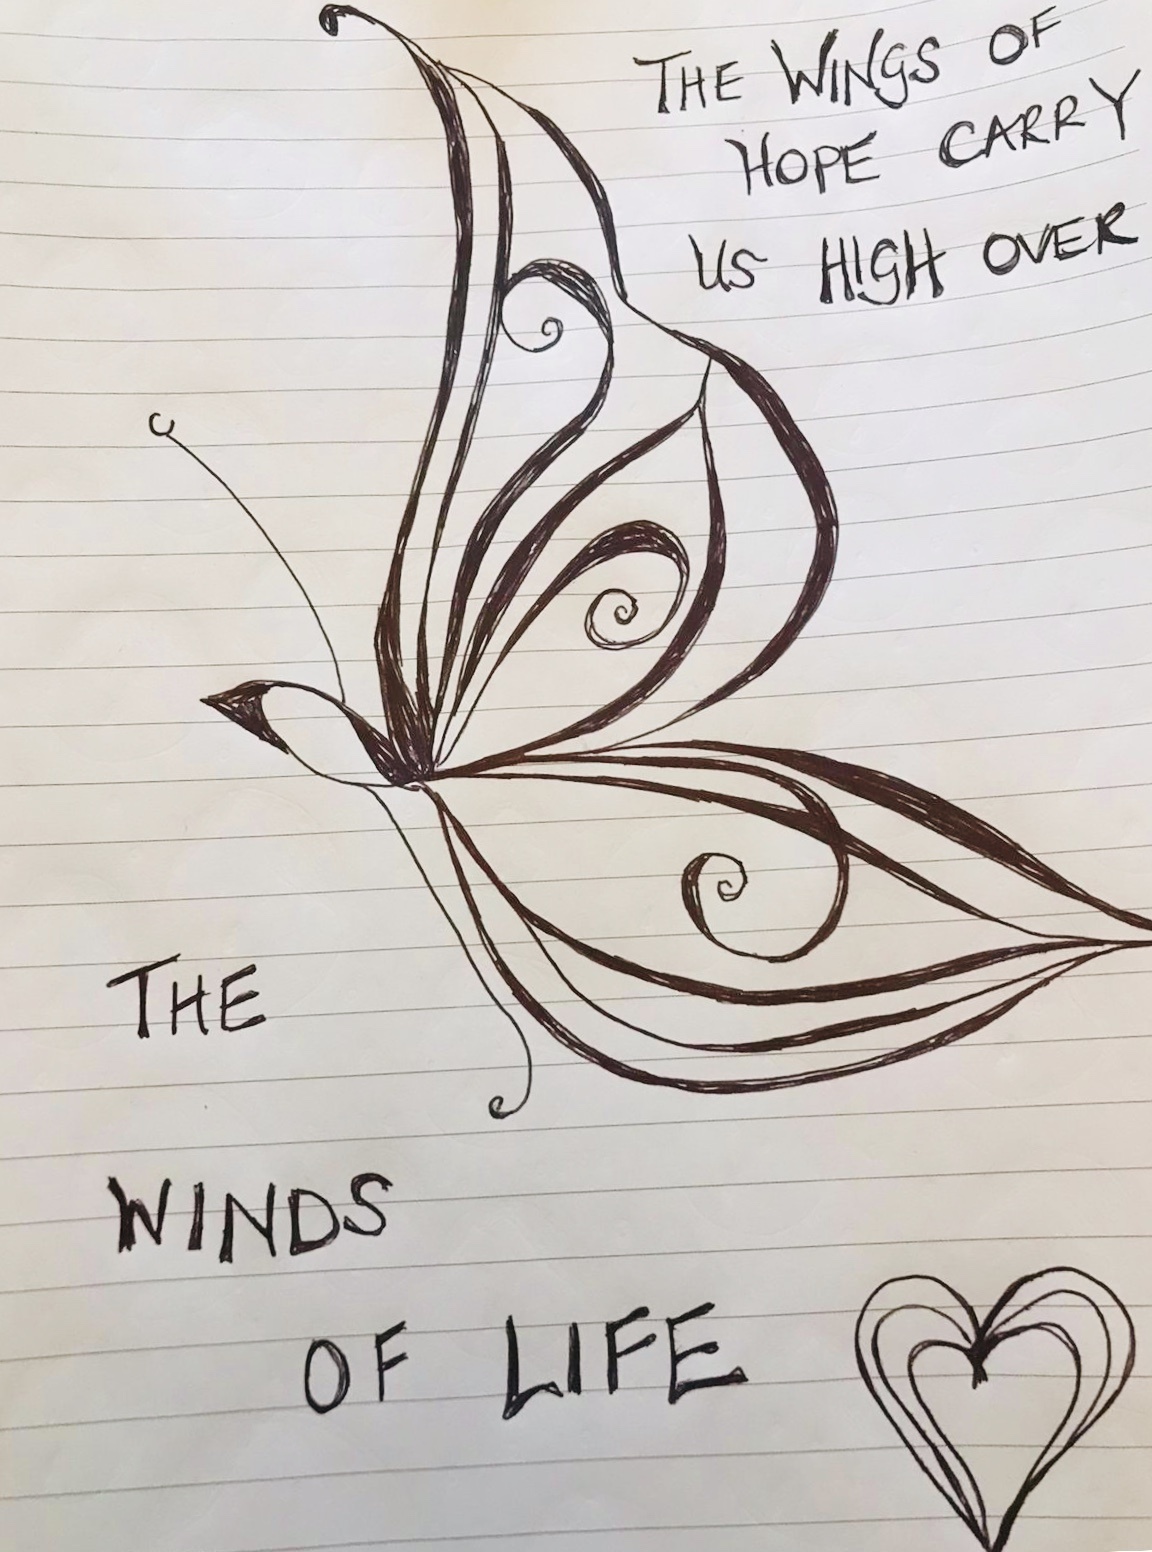 THE WINGS OF
HOPE CARRY
US HIGH OVER
THE
WINDS
OF LIFE